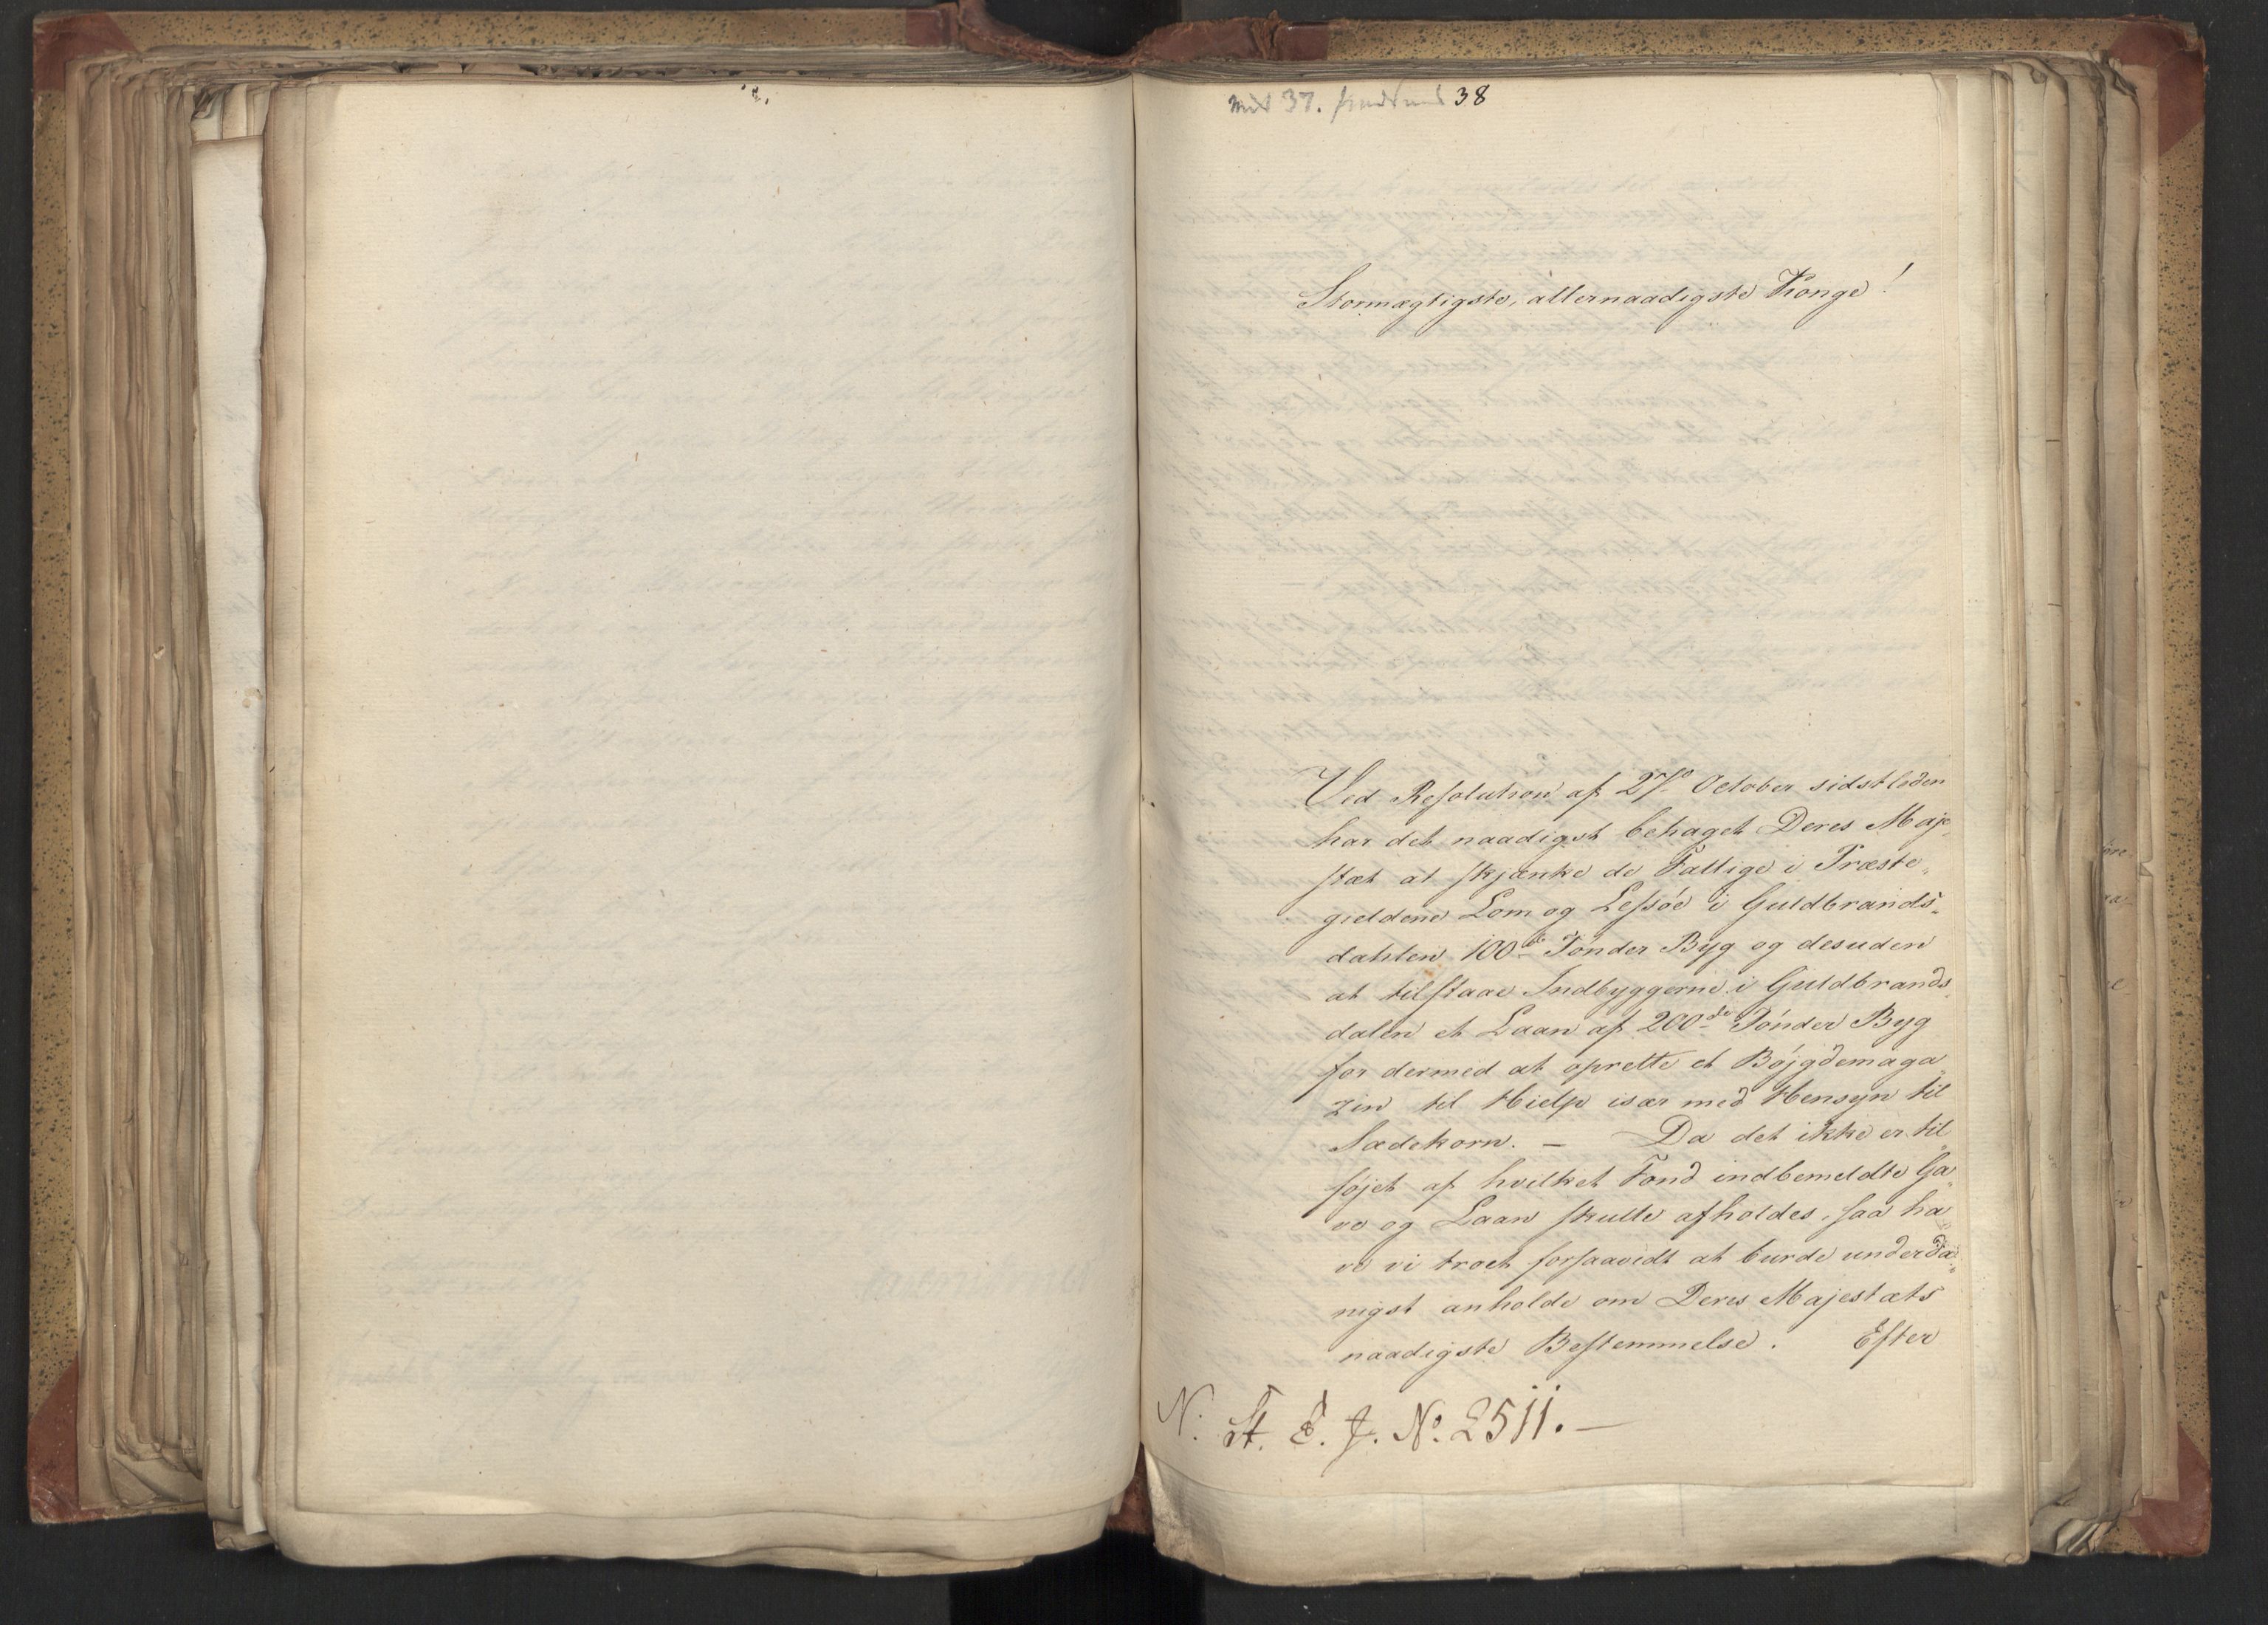 38
Stormægtigste, allernaadigste Konge!
Ved Resolution af 27de October sidstleden
har det naadigst behaget Deres Maje„
stæt at skjænke de Fattige i Præste„
gieldene Lom og Lessöe i Guldbrands„
dahlen 100de Tönder Byg og desuden
at tilstaae Indbyggerne i Guldbrands„
dalen et Laan af 200de Tönder Byg
for dermed at oprette et Böjgdemaga„
zin til Hielp især med Hensyn til
Sædekorn. — Da det ikke er til„
föjet af hvilket Fond indbemeldte Ga„
ve og Laan skulle afholdes, saa ha„
ve vi troet forsaavidt at burde underda„
nigst anholde om Deres Majestæts
naadigste Bestemmelse. Efter
N. St. E. J. No. 2511. —